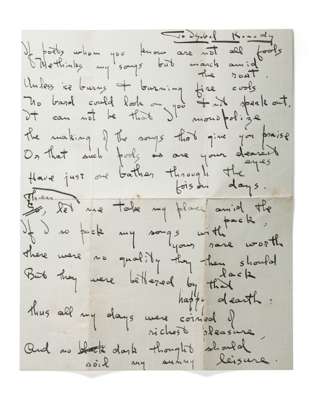 To Isobel Kennedy
If poets whom you know are not all fools
Methinks my songs but march amid
the rout.
Unless ice burns & burning fire cools
No bard could look on you & not speak out,
It can not be that I monopolize
the making of the songs that give you praise
Or that such pools as are your dearest
eyes
Have just one bather through the
foison days.
Then, let me take my place amid the
pack,
If I so pack my songs with
your rare worth
there were no quality they then should
lack
But they were bettered by that
happy dearth:
Thus all my days were coined of
richest pleasure,
And no dark thought should
soil my sunny leisure.